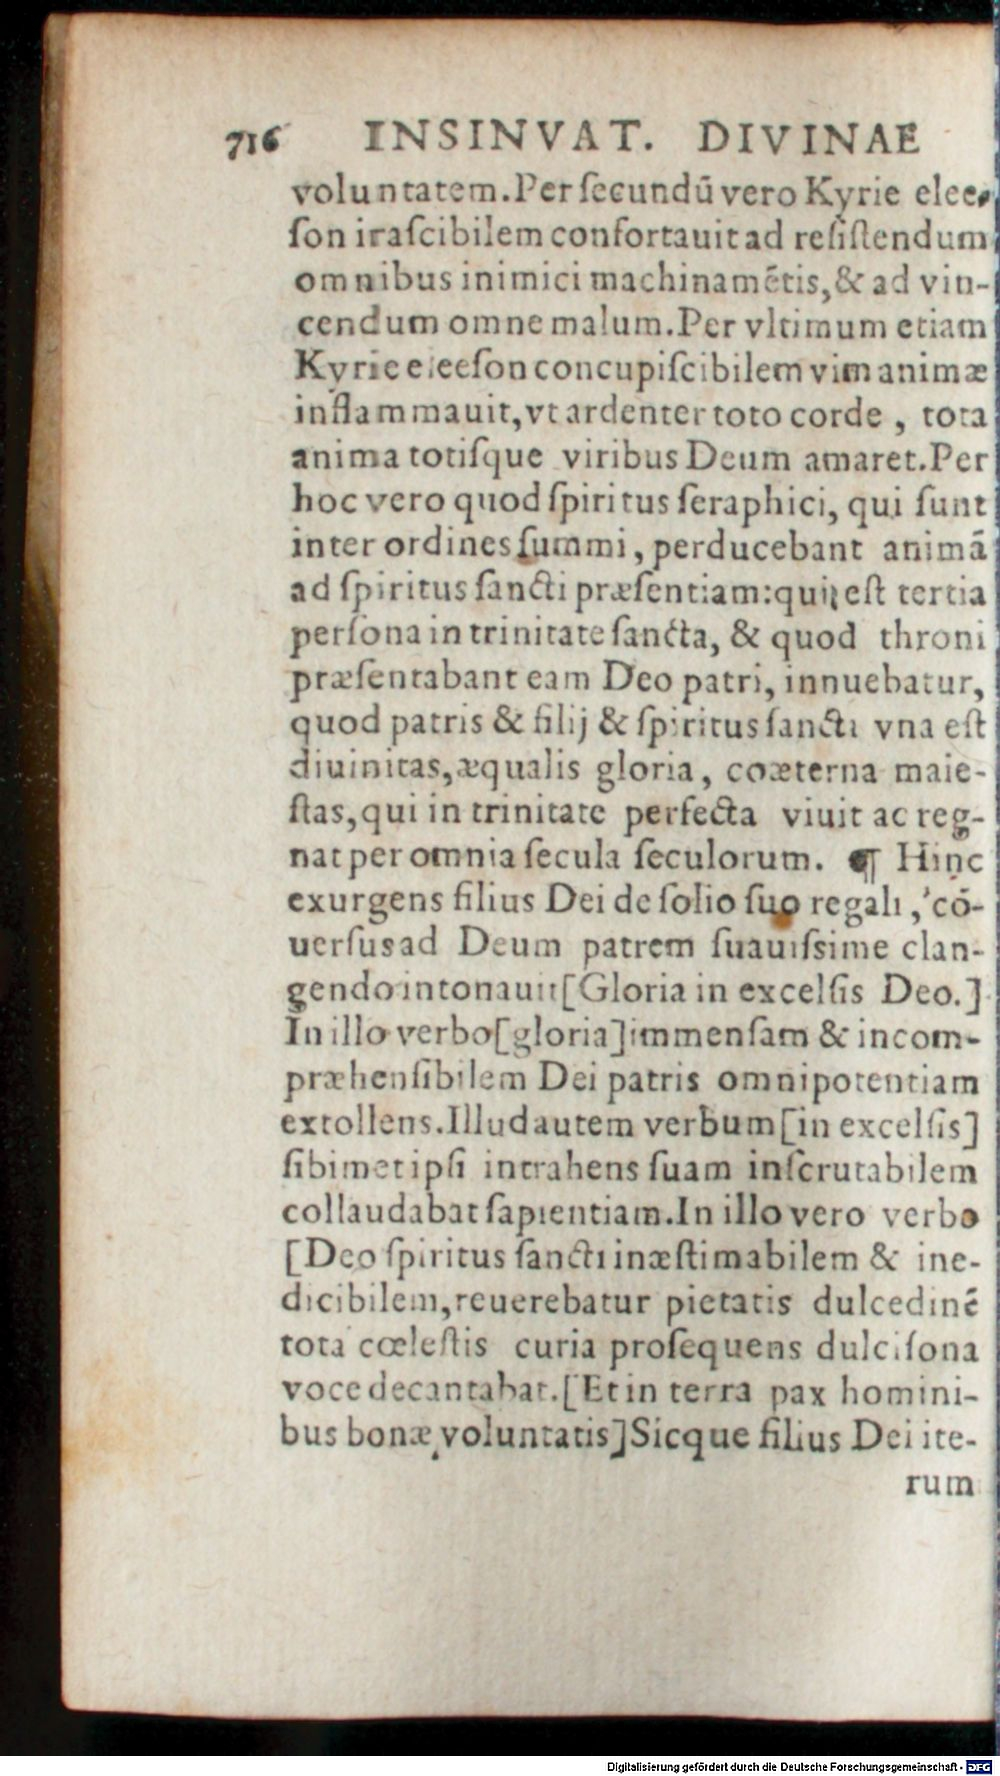 716 INSINVAT. DIVINAE
voluntatem. Per ſecundū vero Kyrie elee-
ſon iraſcibilem confortauit ad reſiſtendum
omnibus inimici machinamētis, & ad vin-
cendum omne malum. Per vltimum etiam
Kyrie eleeſon concupiſcibilem vim animæ
inflammauit, vt ardenter toto corde , tota
anima totiſque viribus Deum amaret. Per
hoc vero quod ſpiritus ſeraphici, qui ſunt
inter ordines ſummi, perducebant animā
ad ſpiritus ſancti præſentiam: qui eſt tertia
perſona in trinitate ſancta, & quod throni
præſentabant eam Deo patri, innuebatur,
quod patris & filij & ſpiritus ſancti vna eſt
diuinitas, æqualis gloria, coæterna maie-
ſtas, qui in trinitate perfecta viuit ac reg-
nat per omnia ſecula ſeculorum. ¶ Hinc
exurgens filius Dei de ſolio ſuo regali, cō-
uerſus ad Deum patrem ſuauiſsime clan-
gendo intonauit [Gloria in excelſis Deo.]
In illo verbo [gloria] immenſam & incom-
præhenſibilem Dei patris omnipotentiam
extollens. Illud autem verbum [in excelſis]
ſibimet ipſi intrahens ſuam inſcrutabilem
collaudabat ſapientiam. In illo vero verbo
[Deo ſpiritus ſancti inæſtimabilem & ine-
dicibilem, reuerebatur pietatis dulcedinē
tota cœleſtis curia proſequens dulciſona
voce decantabat. [Et in terra pax homini-
bus bonæ voluntatis] Sicque filius Dei ite-
rum
Digitalisierung gefördert durch die Deutsche Forschungsgemeinschaft - DFG